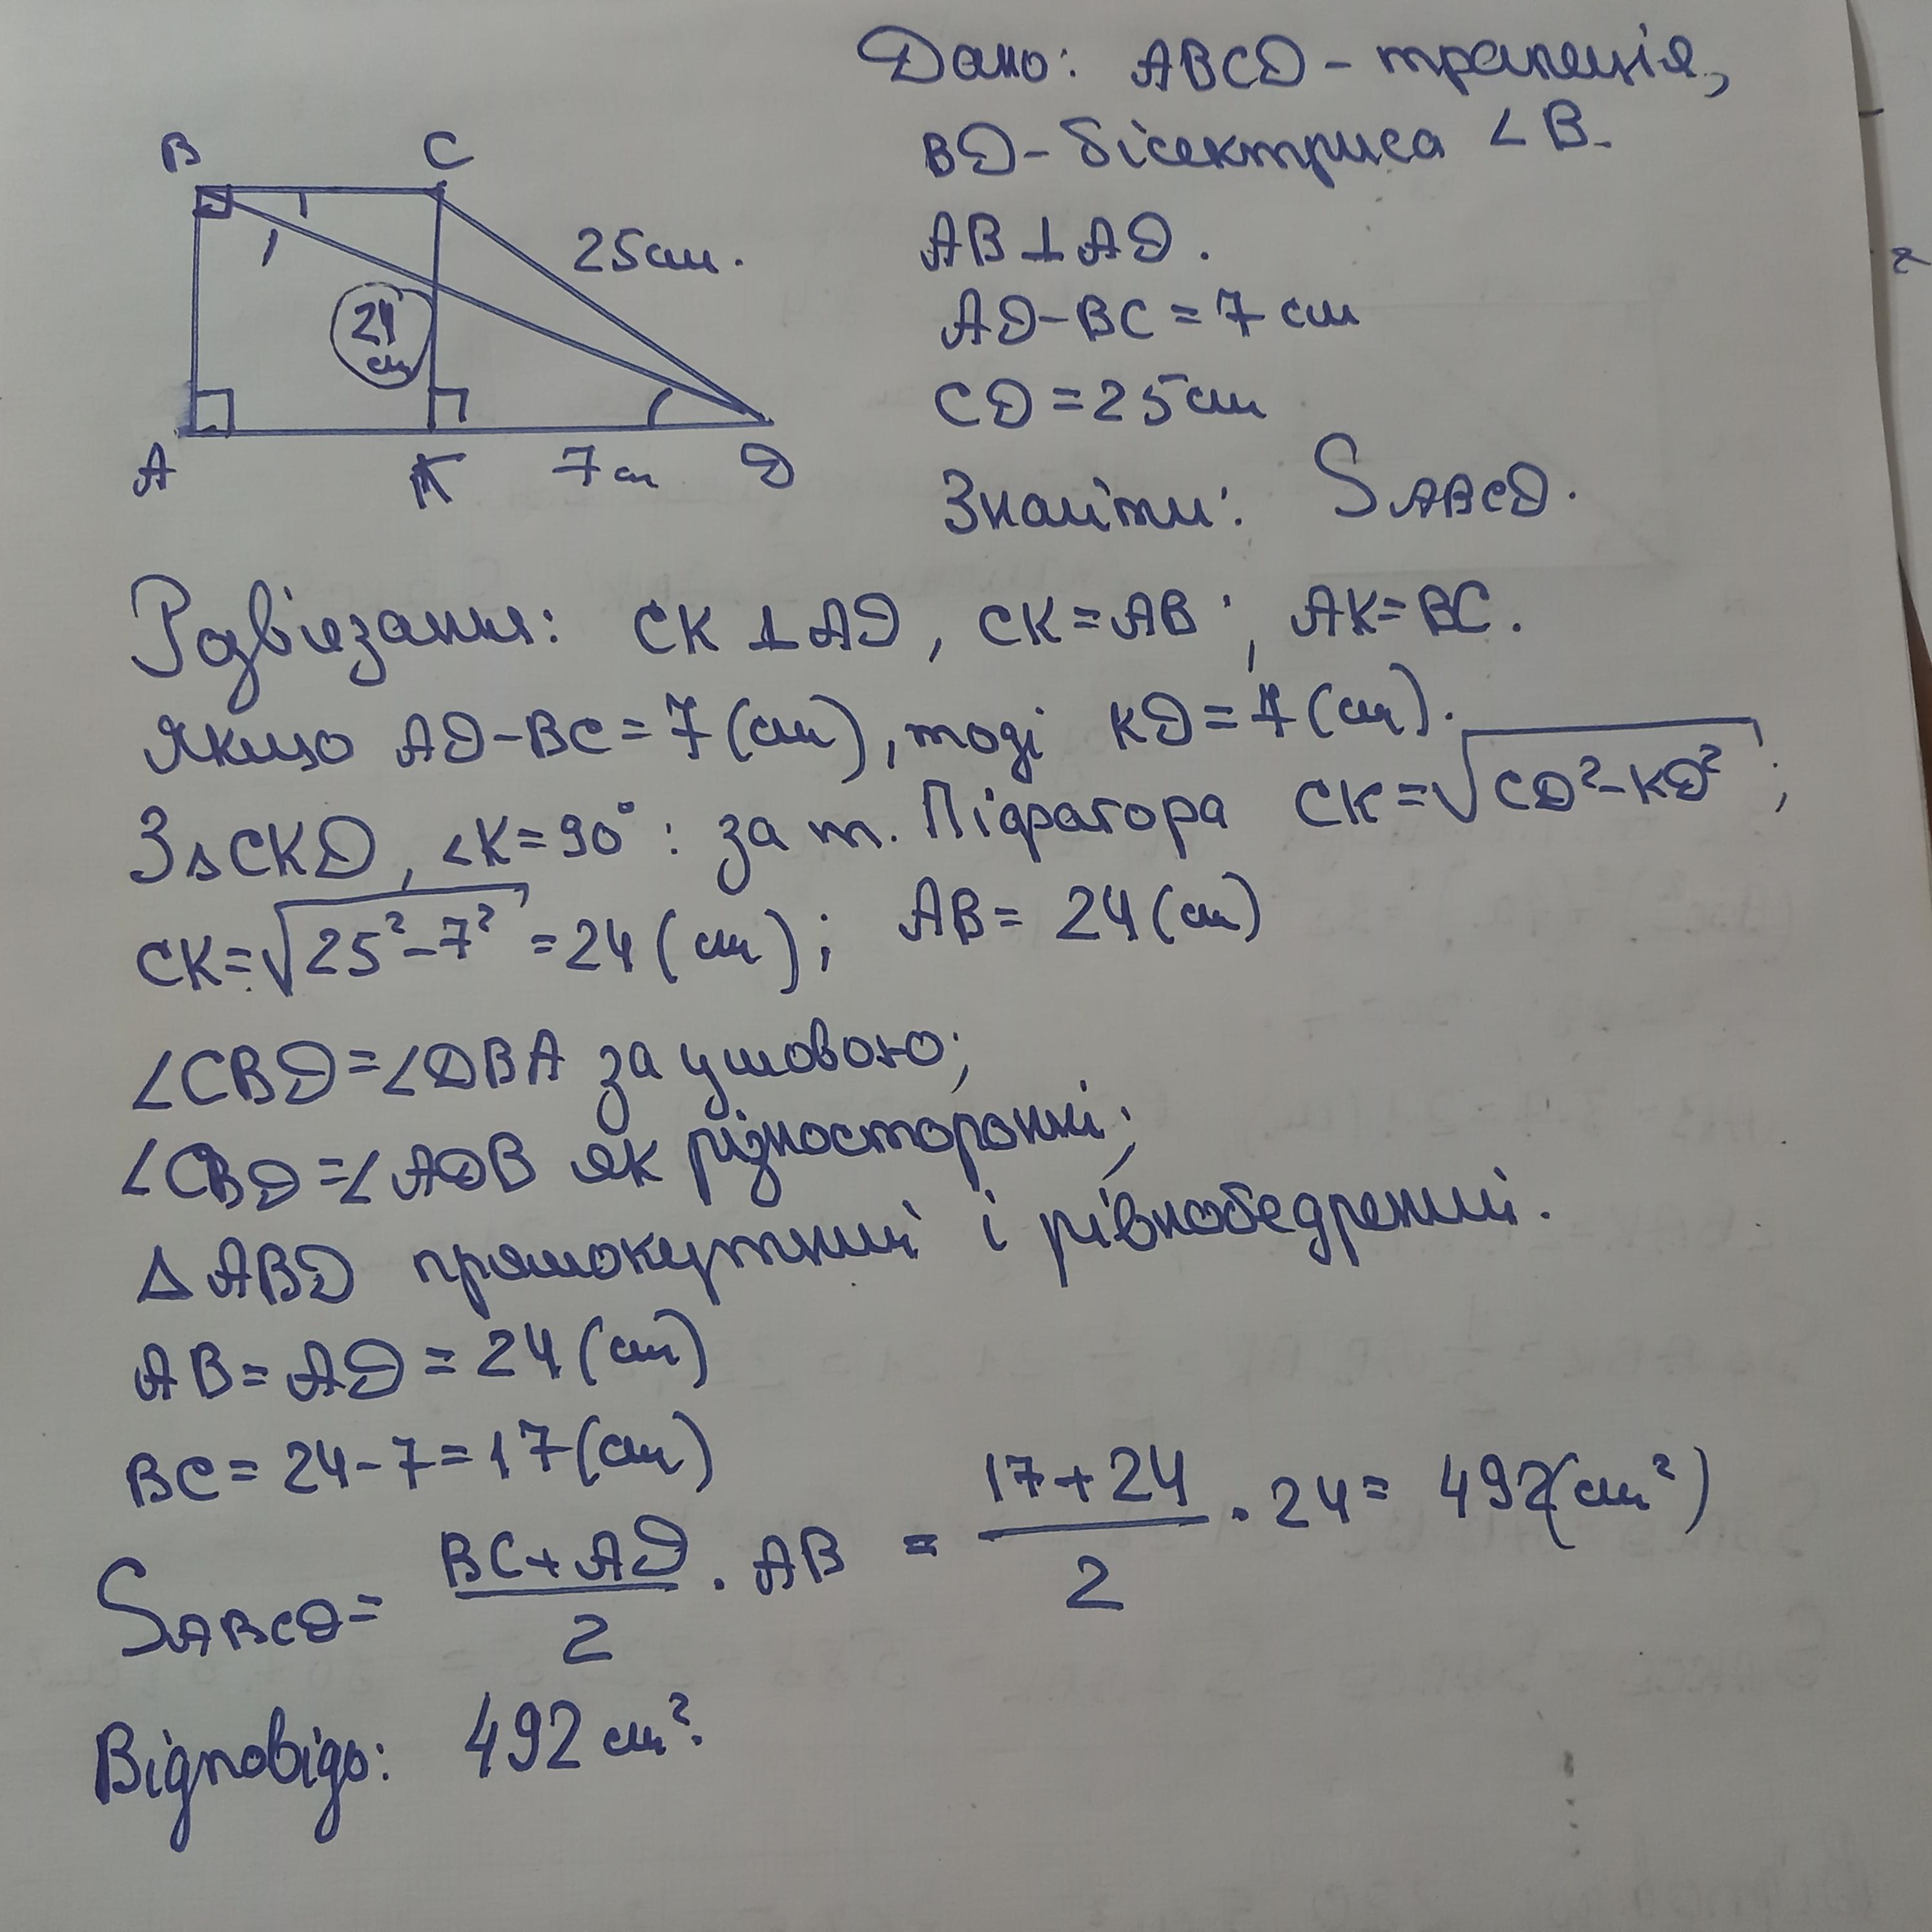 Дано: ABCD - трапеція,
BD - бісектриса ∠B.
AB ⊥ AD.
AD - BC = 7 см
CD = 25 см
Знайти: S ABCD.
B C
25 см.
24 см
A K 7 см D
Розвіезання: CK ⊥ AD, CK = AB; AK = BC.
Якщо AD - BC = 7 (см), тоді KD = 7 (см).
З △CKD, ∠K = 90°: за т. Піфагора CK = √CD² - KD²;
CK = √25² - 7² = 24 (см); AB = 24 (см)
∠CBD = ∠DBA за умовою;
∠CBD = ∠ADB як різносторонні;
△ ABD прямокутний і рівнобедрений.
AB = AD = 24 (см)
BC = 24 - 7 = 17 (см)
S ABCD = BC + AD / 2 · AB = 17 + 24 / 2 · 24 = 492 (см²)
Відповідь: 492 см².